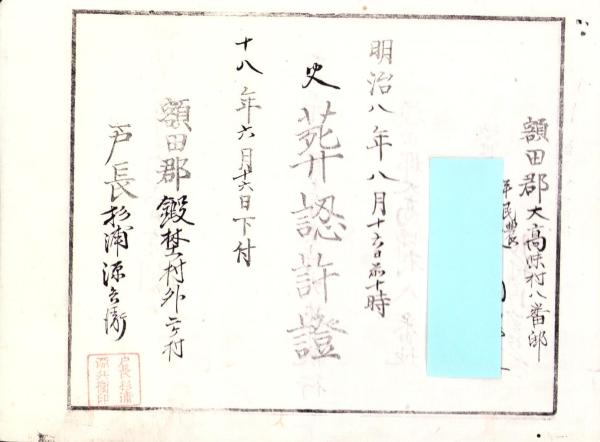 額田郡大高味村八番邸
平民農
明治八年八月十六日前十時
史 葬認許證
十八年六月十六日下付
額田郡鍛埜村外二ケ村
戸長杉浦源兵衛
戸長杉浦
源兵衛印